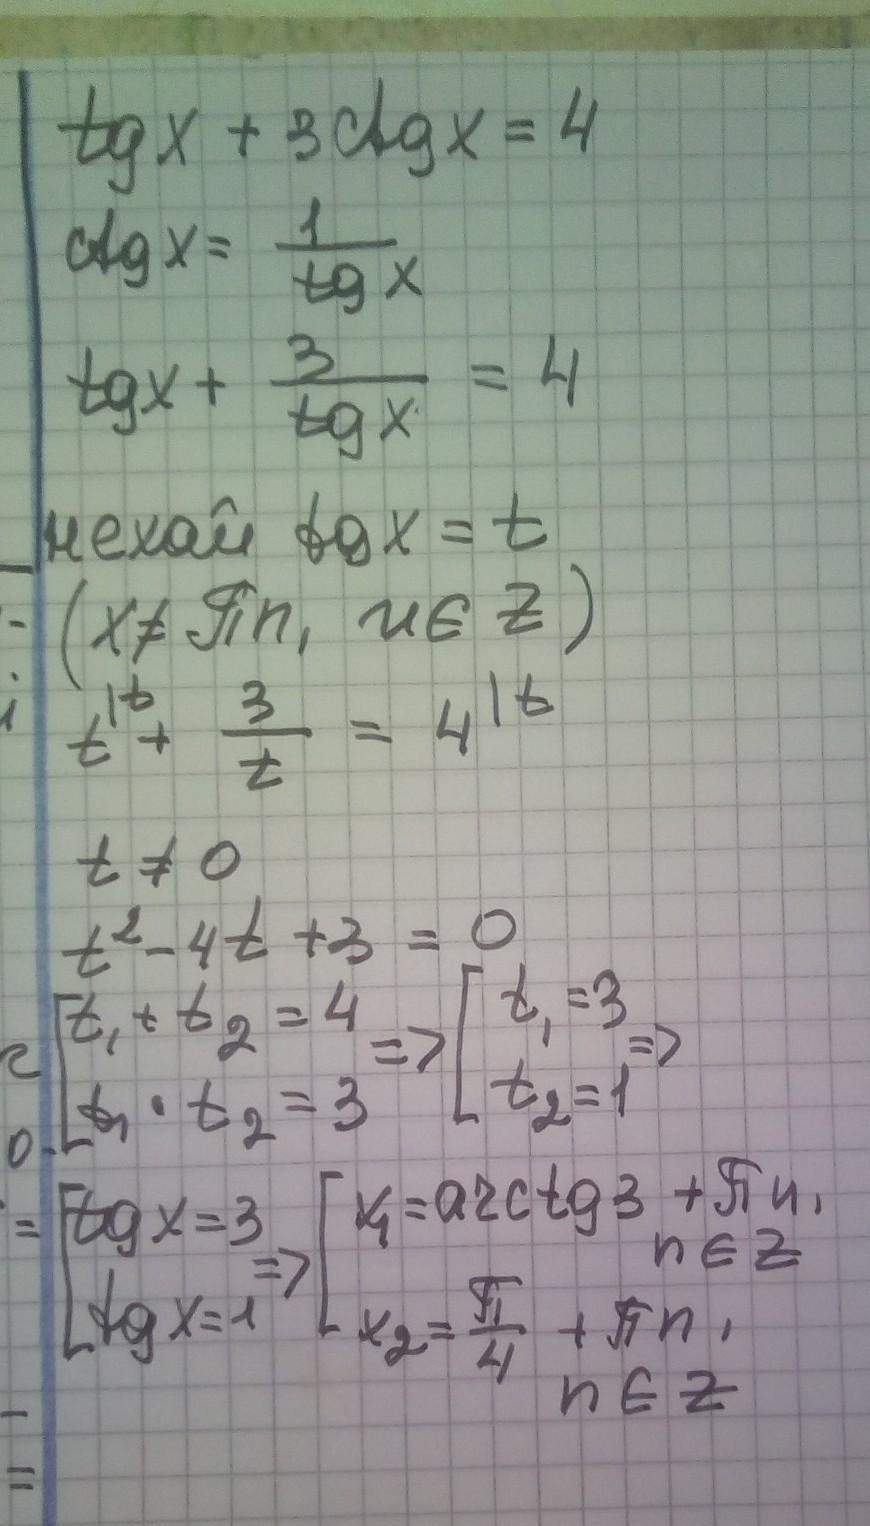 tgx + 3ctgx = 4
ctgx = 1/tgx
tgx + 3/tgx = 4
нехай tgx = t
(x ≠ πn, n ∈ Z)
t|t + 3/t = 4|t
t ≠ 0
t² - 4t + 3 = 0
[t₁ + t₂ = 4 => [t₁ = 3 =>
t₁ · t₂ = 3 t₂ = 1
[tgx = 3 => [x₁ = arctg3 + πn,
n ∈ Z
tgx = 1 x₂ = π/4 + πn,
n ∈ Z